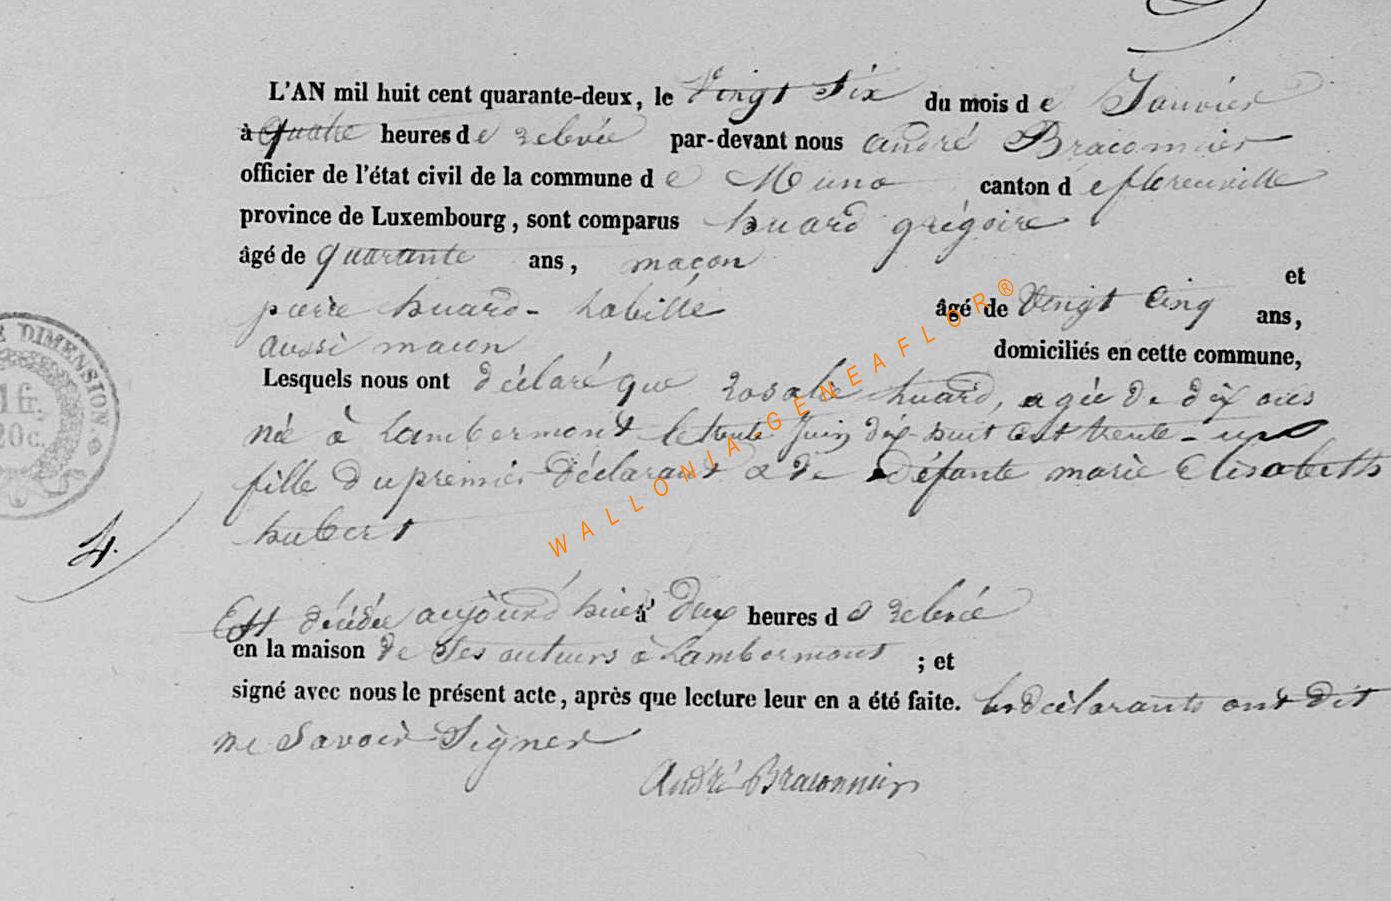 L'AN mil huit cent quarante-deux, le Vingt Six du mois de Janvier
à quatre heures de relevée par-devant nous andré Braconnier
officier de l'état civil de la commune de Muno canton de florenville
province de Luxembourg, sont comparus huard grégoire
âgé de quarante ans, maçon
et
pierre huard - habille âgé de Vingt Cinq ans,
aussi macon domiciliés en cette commune,
Lesquels nous ont déclaré que rosalie huard, agée de dix ans
née à Lambermont le trente Juin dix-huit cent trente-un
fille du premier déclarant & de défunte marie Elisabeth
hubert
4.
Est décédée aujourd'hui à deux heures de relevée
en la maison de ses auteurs à Lambermont ; et
signé avec nous le présent acte, après que lecture leur en a été faite. les déclarants ont dit
ne Savoir Signer
André Braconnier
DIMENSION.
1 fr.
20c.
WALLONIA GENEAFLOR®